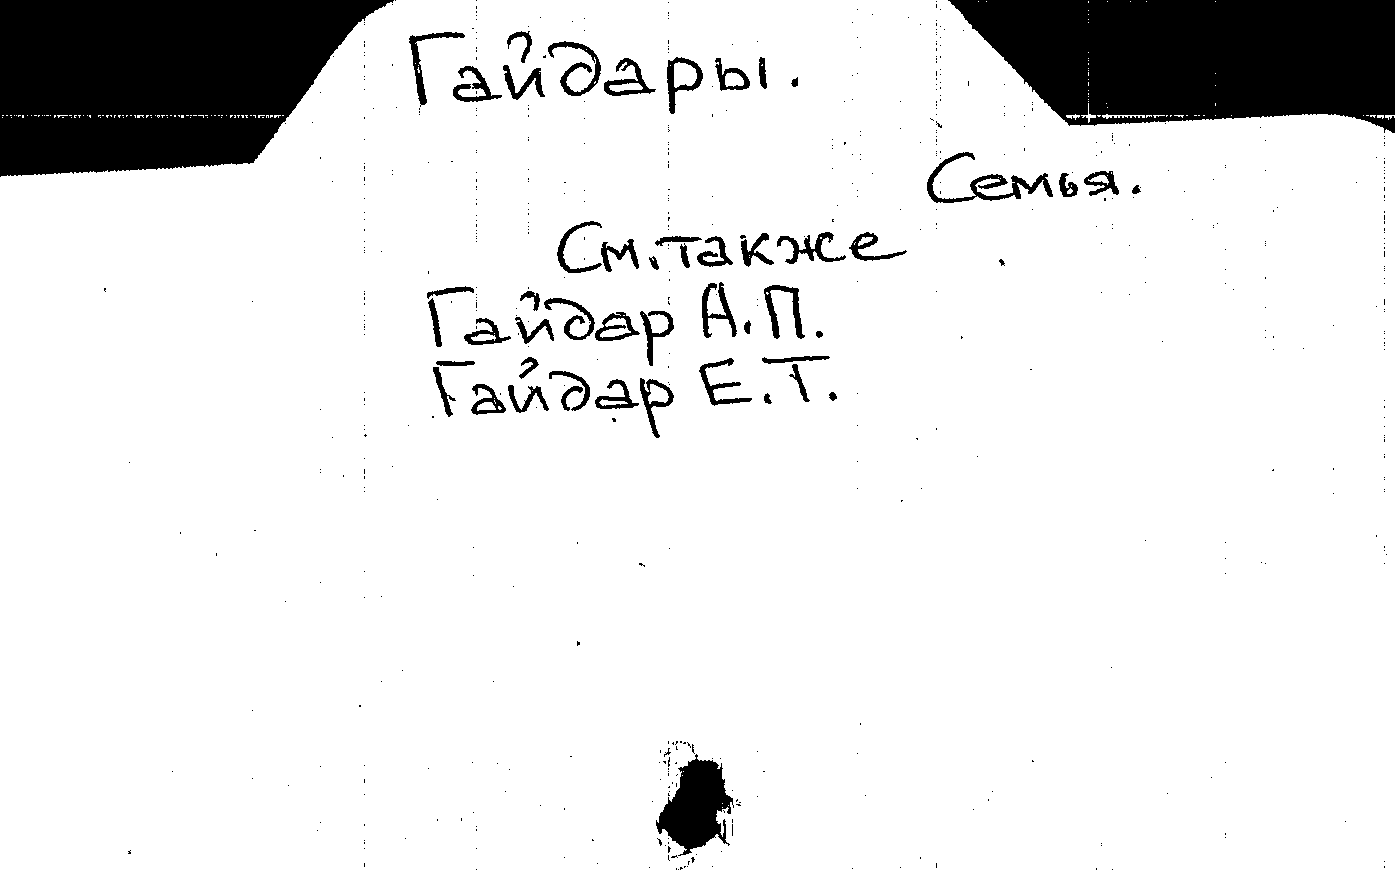 Гайдары.
Семья.
См. также
Гайдар А.П.
Гайдар Е.Т.